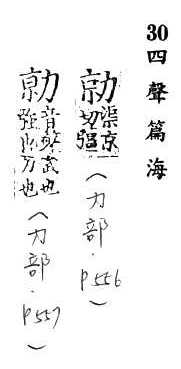 30 四聲篇海
勍 渠京切强 (力部.p556)
勍 音擎武也强也力也 (力部.p557)